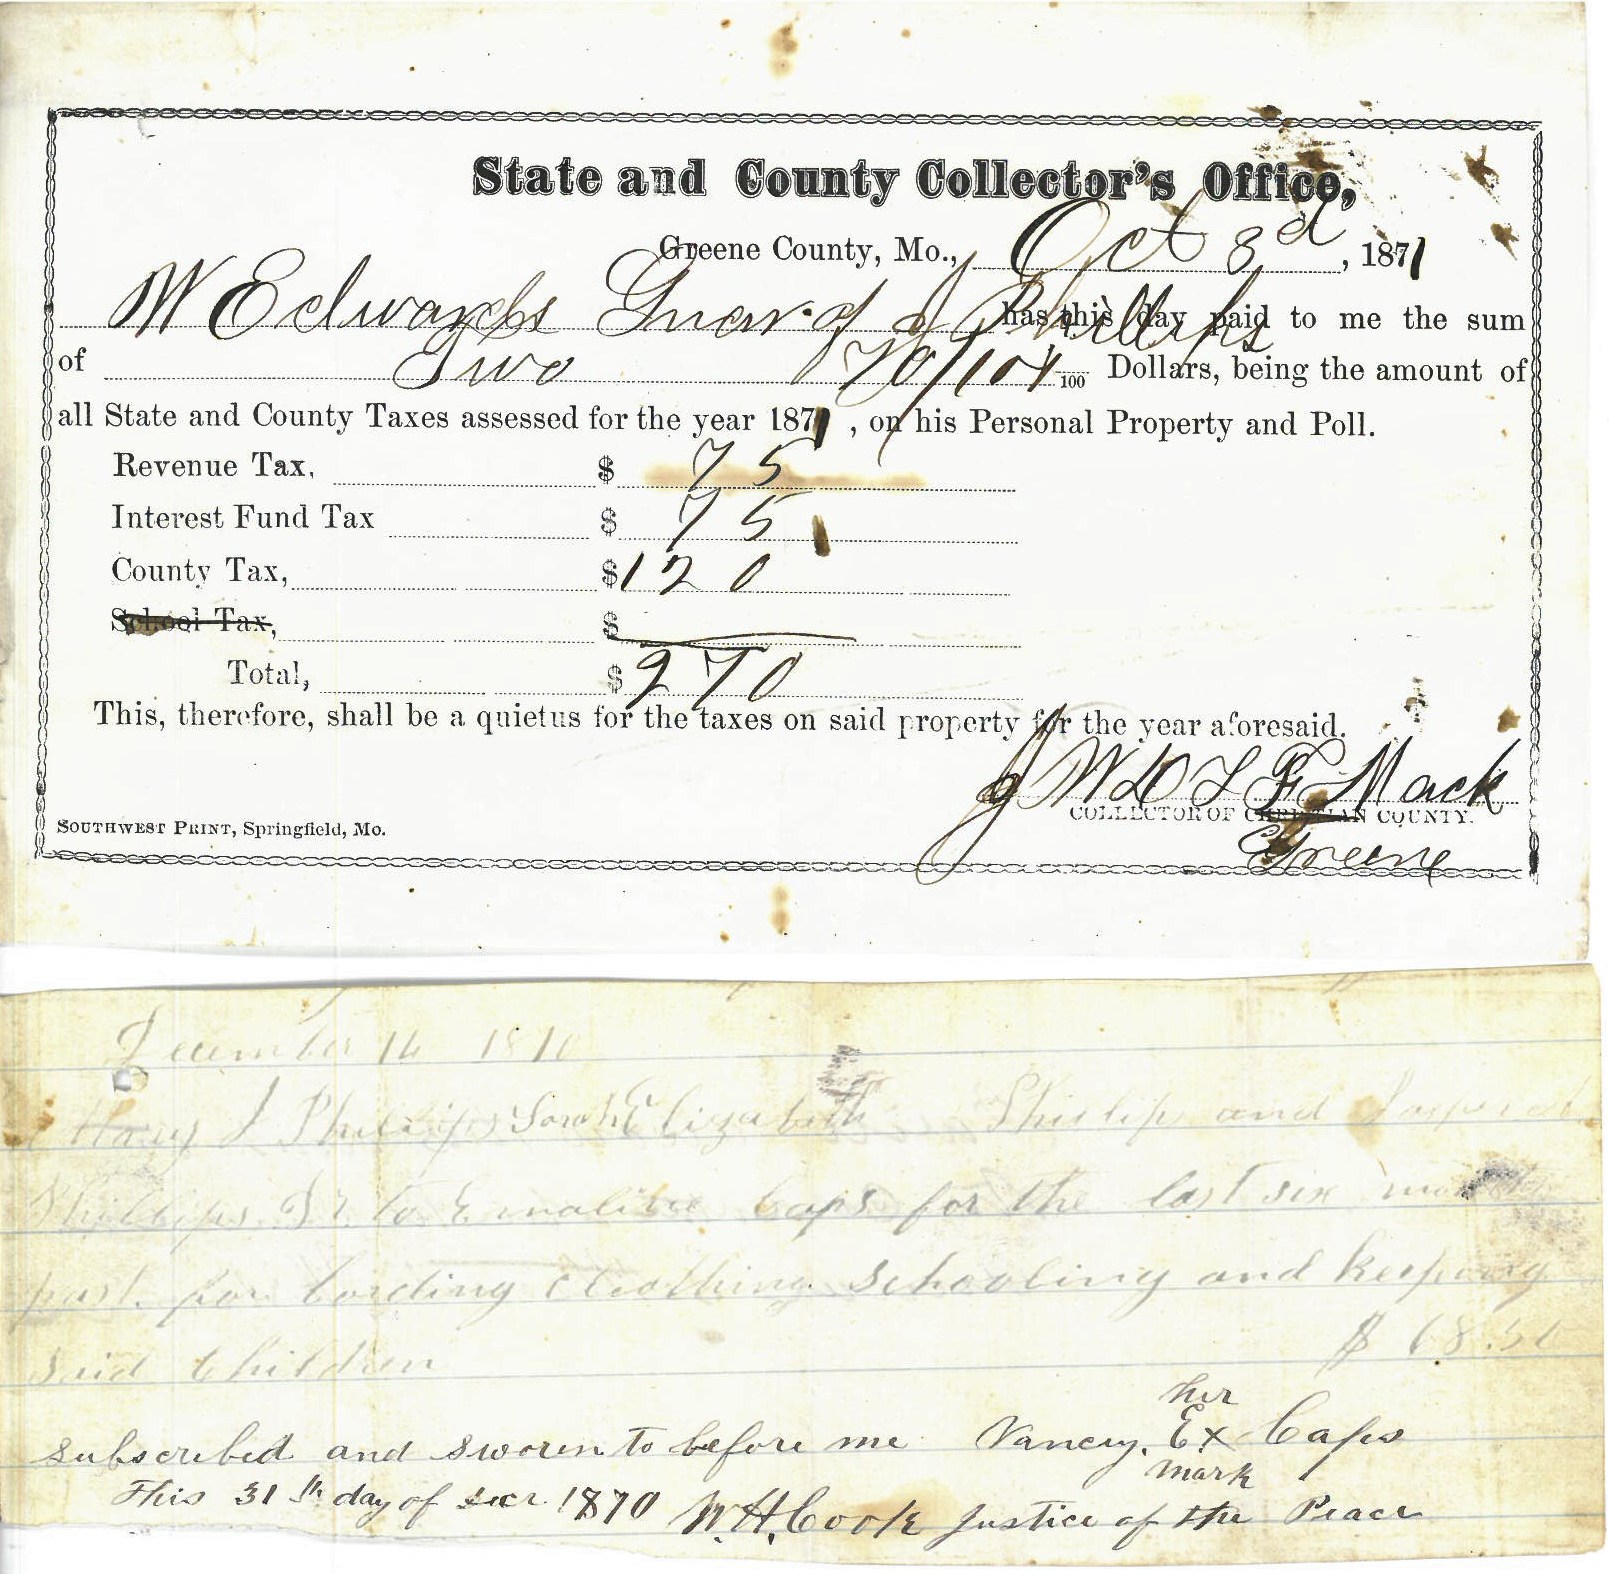 State and County Collector's Office,
Greene County, Mo., Oct 3d, 1871
W Edwards Guar. of J Phillips has this day paid to me the sum
of Two 70/100 100 Dollars, being the amount of
all State and County Taxes assessed for the year 1871, on his Personal Property and Poll.
Revenue Tax, $ 75
Interest Fund Tax $ 75
County Tax, $ 120
School Tax, $
Total, $ 270
This, therefore, shall be a quietus for the taxes on said property for the year aforesaid.
F Mack
COLLECTOR OF CHRISTIAN COUNTY.
Greene
SOUTHWEST PRINT, Springfield, Mo.
December 14 1870
Mary J Phillips Sarah Elizabeth Phillip and
Phillips Dr to Emaline Caps for the last six months
past. for bording clothing schooling and keeping
said children $ 68.50
her
subscribed and sworn to before me Nancy. E x Caps
mark
This 31th day of decr 1870 W.H. Cook Justice of the Peace